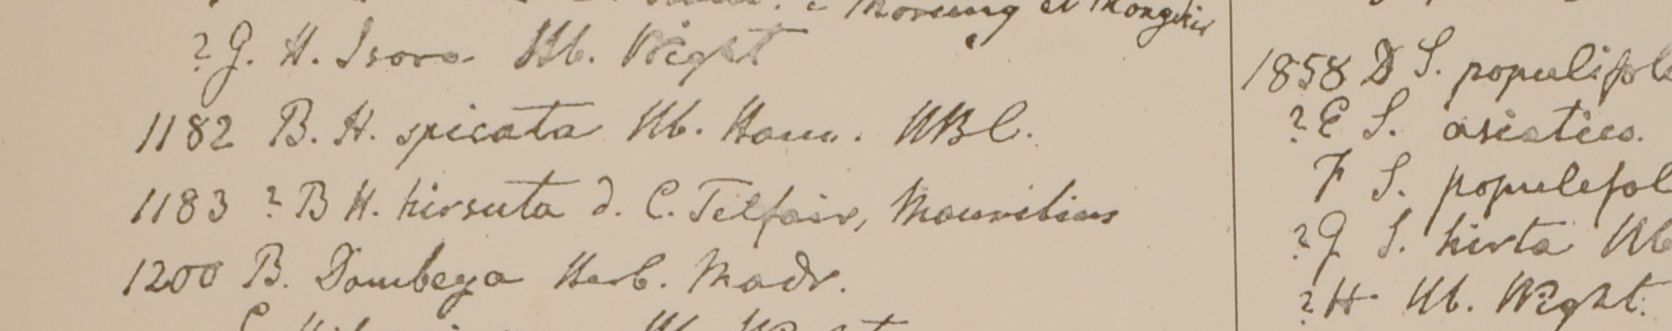 Morung et Mongihir
? G. H. Isora Hb. Wight
1182 B. H. spicata Hb. Ham. HBC.
1183 ? B H. hirsuta d. C. Telfair, Mauritius
1200 B. Dombeya Herb. Madr.
1858 D S. populifol
? E S. asiatica.
F S. populifol
? G S. hirta Hb
? H Hb. Wight.